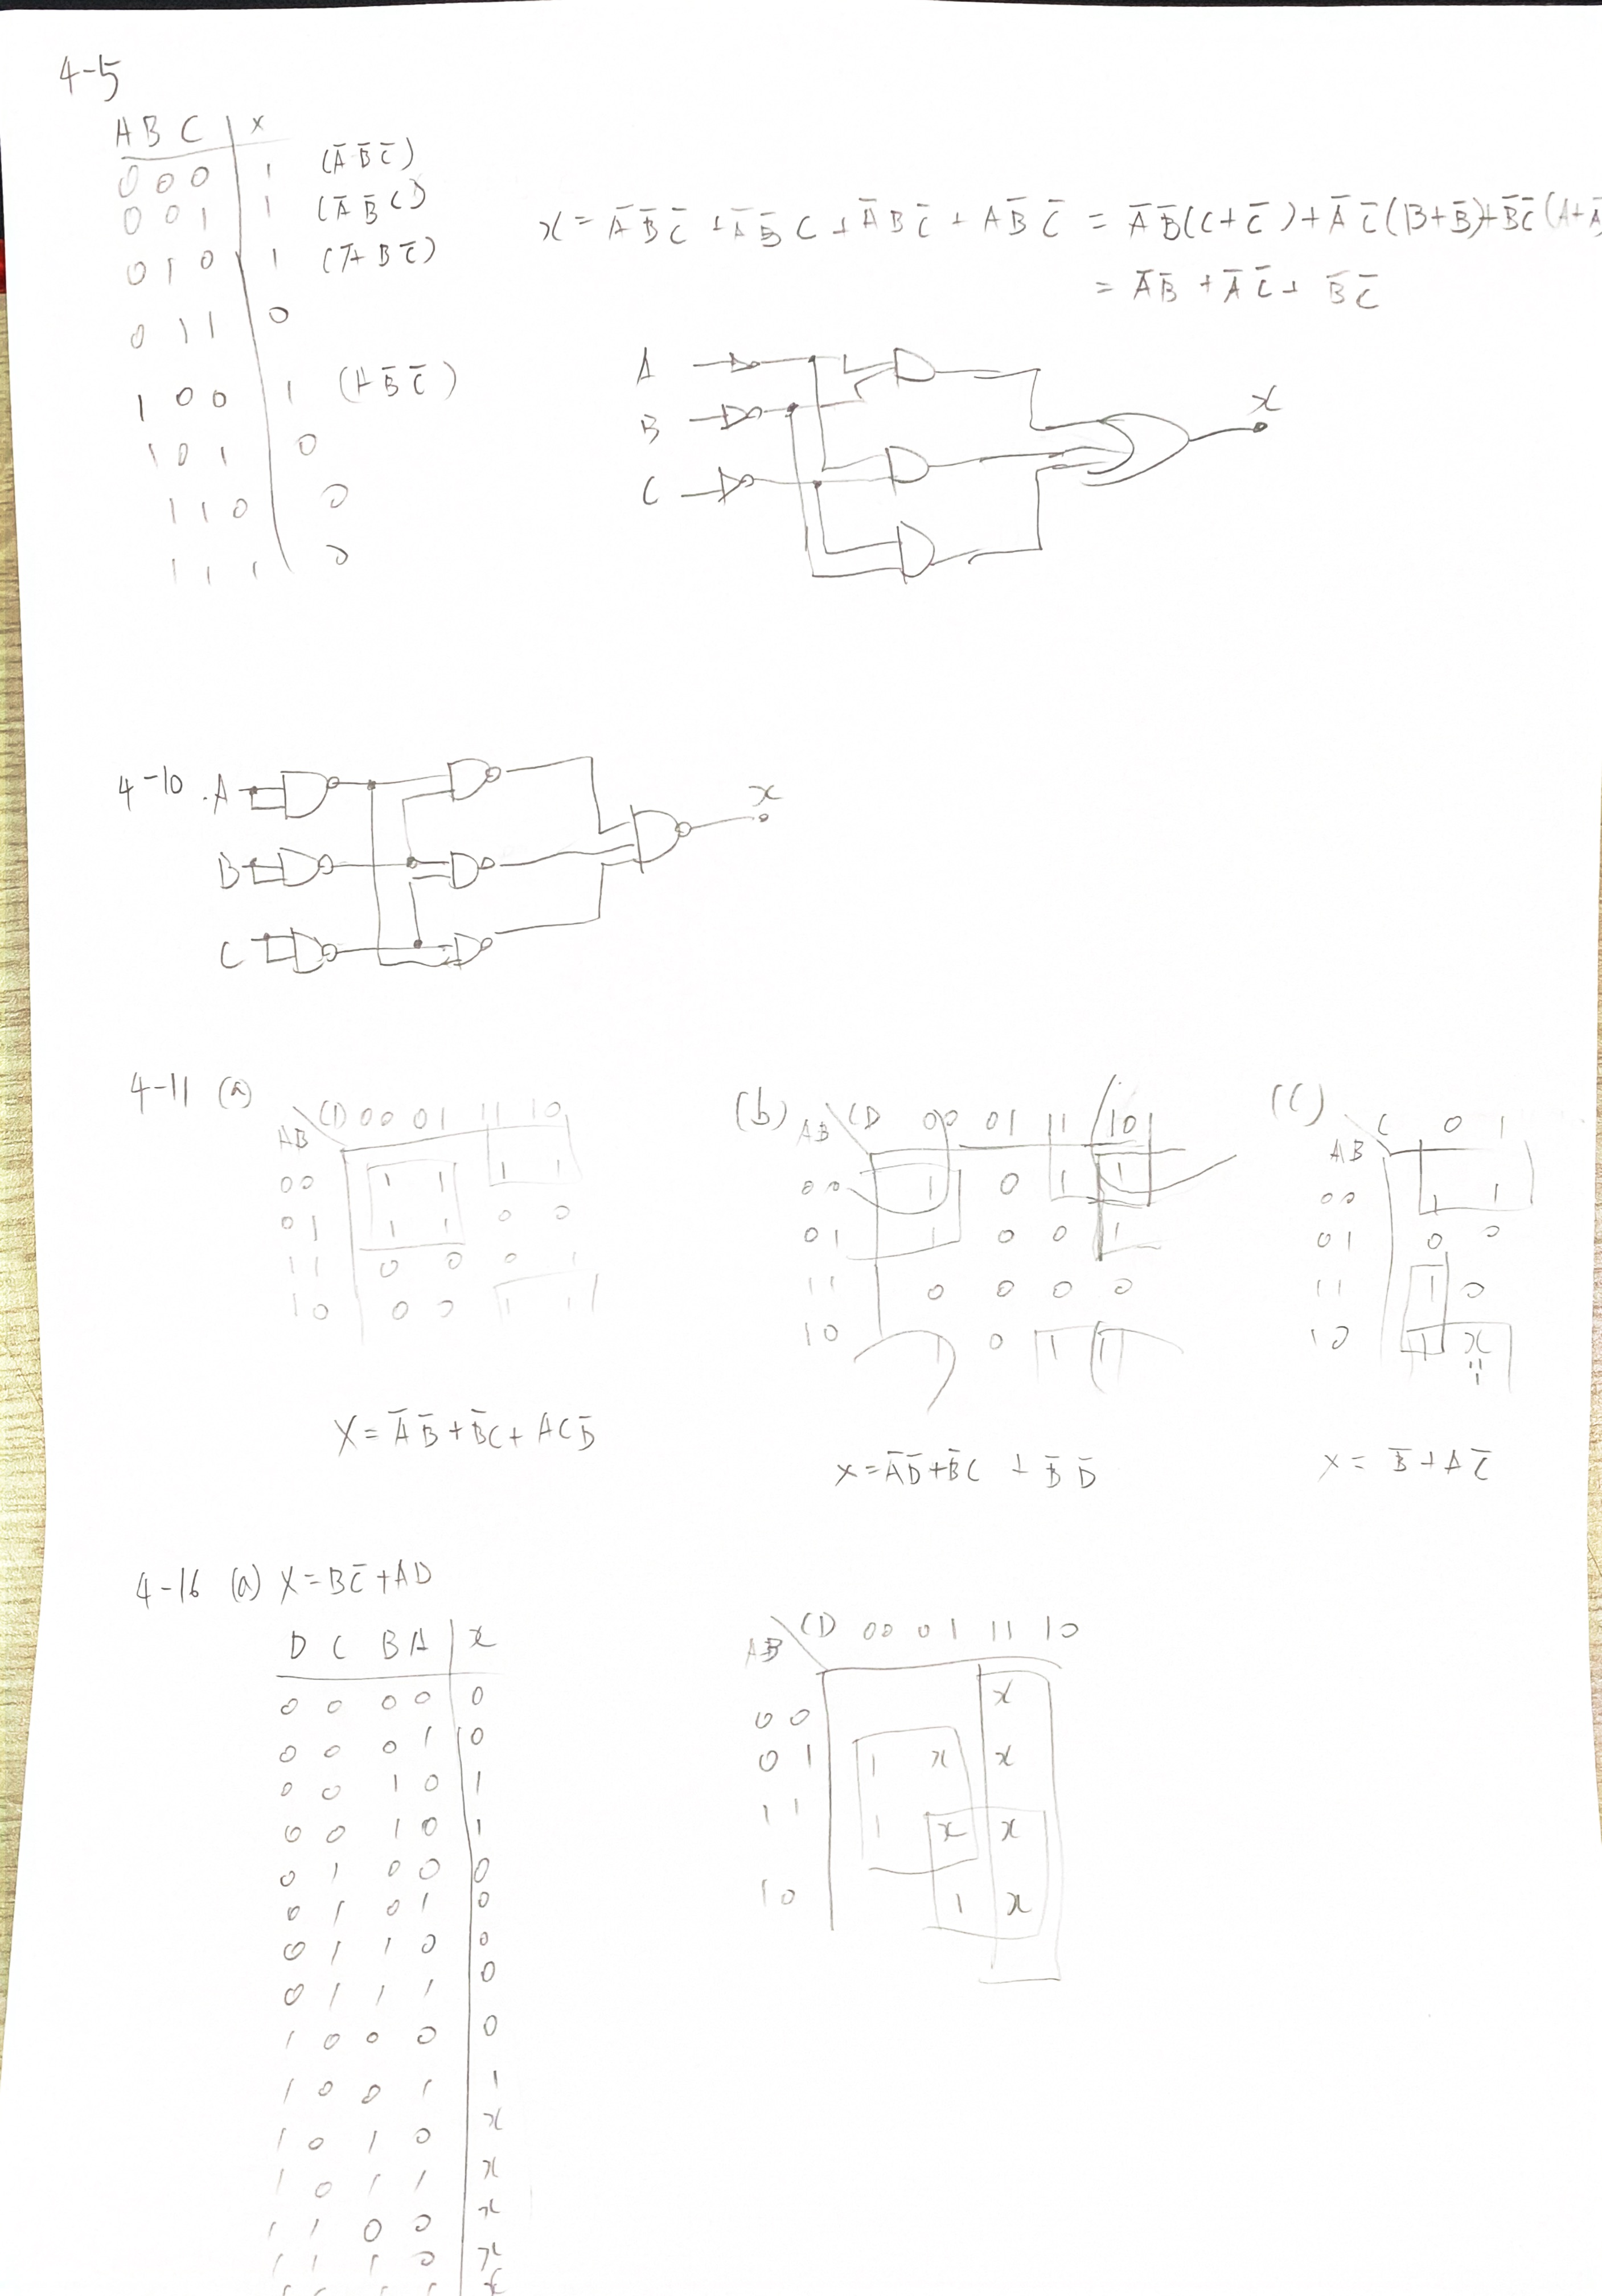 4-5
A B C | x
0 0 0 | 1 (A̅ B̅ C̅)
0 0 1 | 1 (A̅ B̅ C)
0 1 0 | 1 (A̅ B C̅)
0 1 1 | 0
1 0 0 | 1 (A B̅ C̅)
1 0 1 | 0
1 1 0 | 0
1 1 1 | 0
x = A̅ B̅ C̅ + A̅ B̅ C + A̅ B C̅ + A B̅ C̅ = A̅ B̅ (C + C̅) + A̅ C̅ (B + B̅) + B̅ C̅ (A + A̅
= A̅ B̅ + A̅ C̅ + B̅ C̅
A
B
C
x
4-10
A
B
C
x
4-11 (a)
AB \ CD 00 01 11 10
00 1 1 1 1
01 1 1 0 0
11 0 0 0 1
10 0 0 1 1
X = A̅ B̅ + B̅ C + A C D̅
(b)
AB \ CD 00 01 11 10
00 1 0 1 1
01 1 0 0 1
11 0 0 0 0
10 1 0 1 1
x = A̅ D̅ + B̅ C + B̅ D̅
(C)
AB \ C 0 1
00 1 1
01 0 0
11 1 0
10 1 x
1
x = B̅ + A C̅
4-16 (a) X = B C̅ + A D
D C B A | x
0 0 0 0 | 0
0 0 0 1 | 0
0 0 1 0 | 1
0 0 1 0 | 1
0 1 0 0 | 0
0 1 0 1 | 0
0 1 1 0 | 0
0 1 1 1 | 0
1 0 0 0 | 0
1 0 0 1 | 1
1 0 1 0 | x
1 0 1 1 | x
1 1 0 0 | x
1 1 1 0 | x
AB \ CD 00 01 11 10
00 x
01 1 x x
11 1 x x
10 1 x